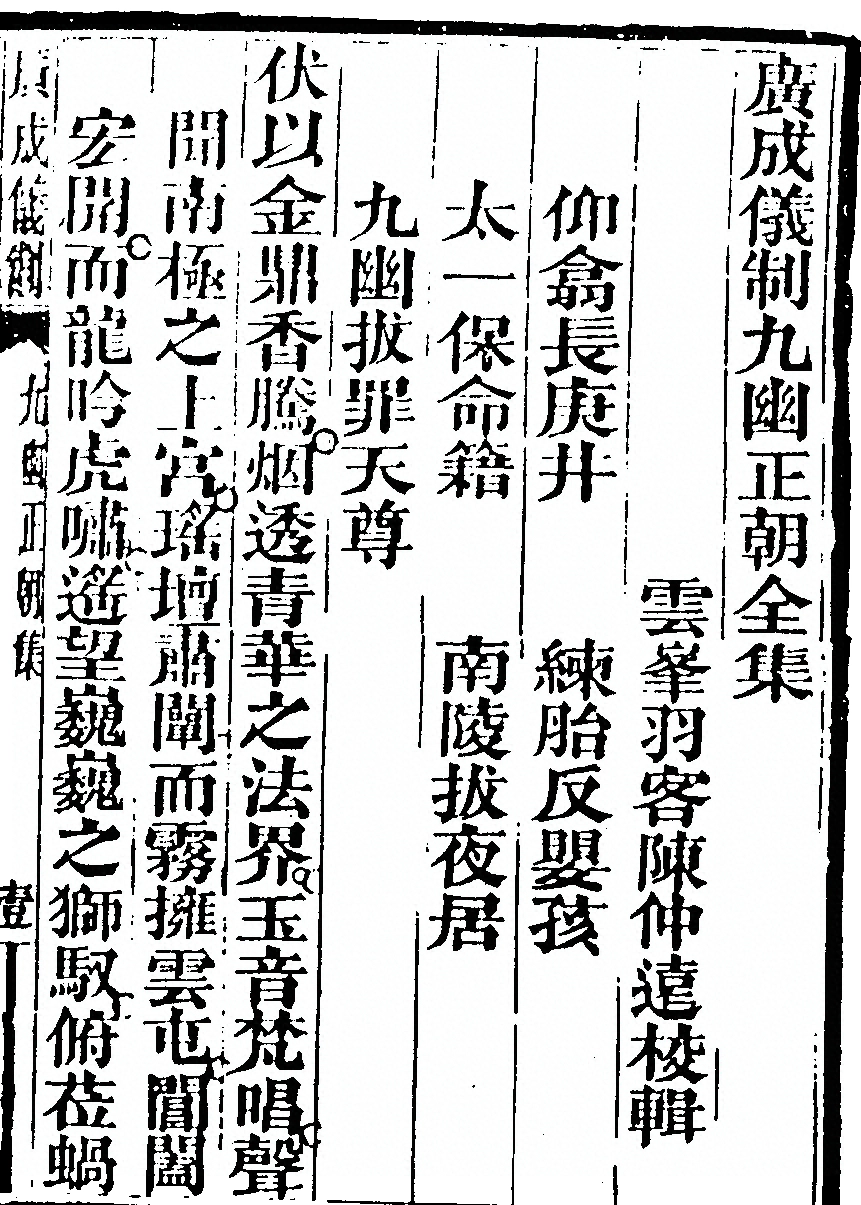 廣成儀制九幽正朝全集
雲峯羽客陳仲遠校輯
仰翕長庚井　練胎反嬰孩
太一保命籍　南陵拔夜居
九幽拔罪天尊
伏以金鼎香騰烟透青華之法界玉音梵唱聲
聞南極之上宮瑤壇肅闡而霧擁雲屯閶闔
宏開而龍吟虎嘯遥望巍巍之獅馭俯莅蝸
廣成儀制　九幽正朝集　壹